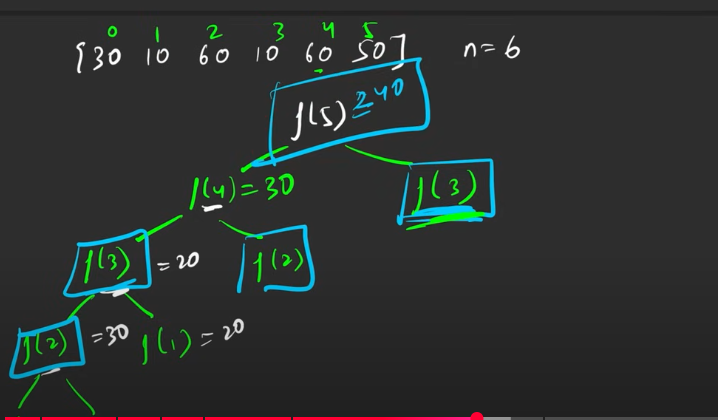 0 1 2 3 4 5
[30 10 60 10 60 50] n=6
f(5) 240
f(4)=30 f(3)
f(3) =20 f(2)
f(2) =30 f(1)=20